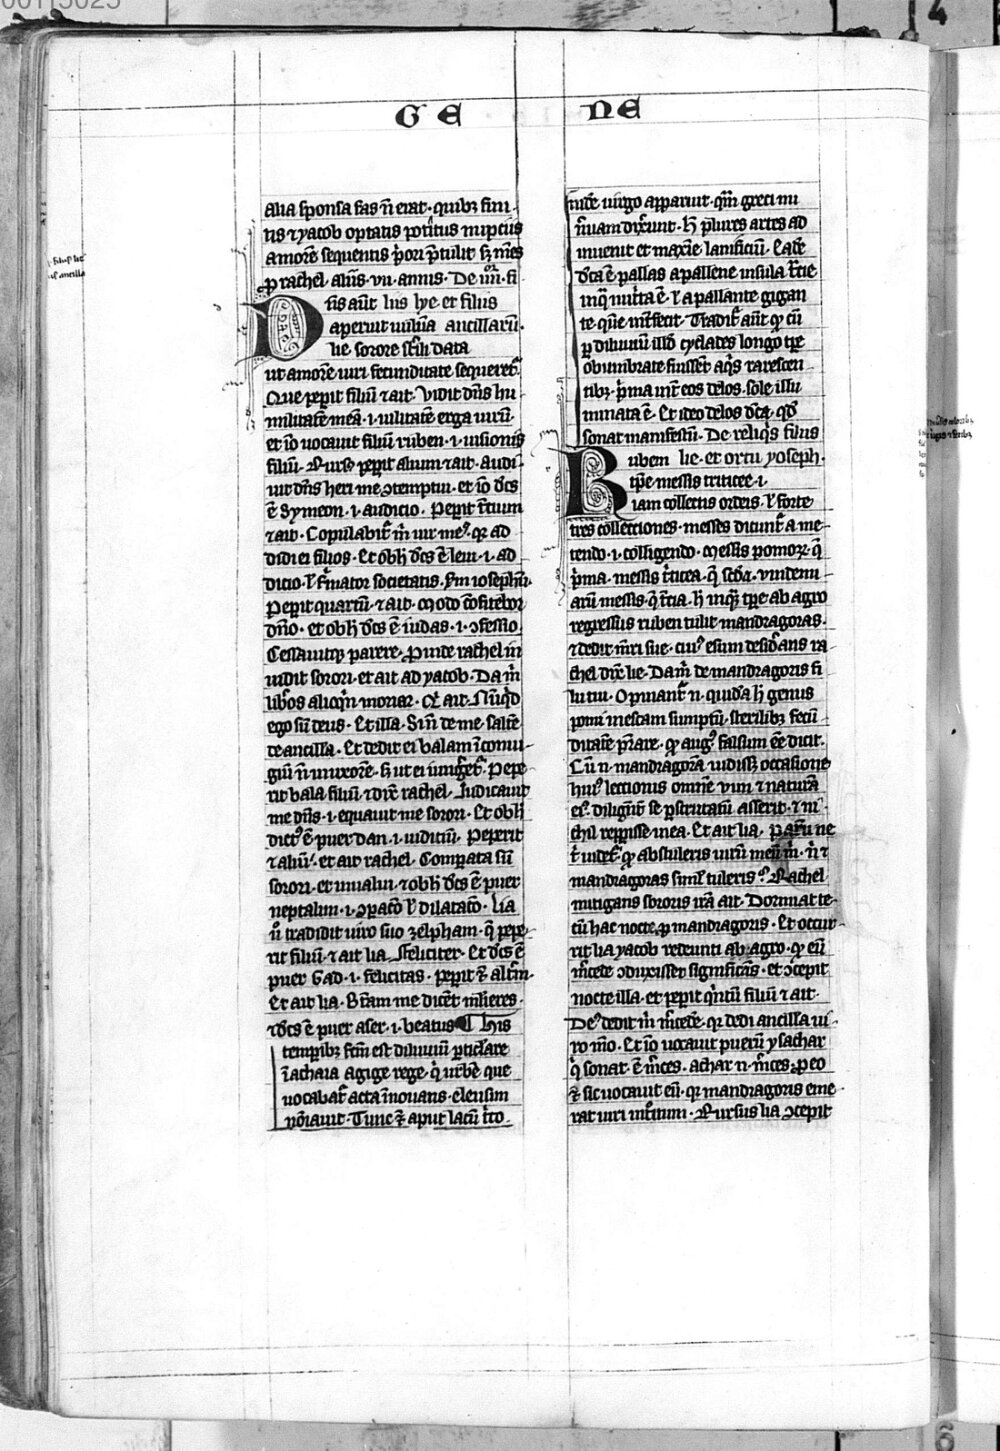 GE NE
alia sponsa fas ñ erat · quibꝫ fini
tis ⁊ yacob optatis potitus nuptiis
amorē sequentis p̄ori p̄tulit
rachel · aliis · vii · annis · De · iiii · fi
Dis aūt liis lye · et filiis
aperuit uuluā ancillarū ·
lie sorore sterili data
ut amorē uiri fecunditate sequeret᷑
Que peperit filiū ⁊ ait · Vidit dn̄s hu
militatē meā · i · uilitatē erga uirū ·
et iō uocauit filiū ruben · i · uisionis
filiū · Rursꝰ peperit alium ⁊ ait · Audi
uit dn̄s heri me ↄtemptui · et iō dc̄s
ē Symeon · i · auditio · Peperit t̄cium
⁊ ait · Copulabit᷑ m̄ uir meꝰ · qr ad
didi ei filios · Et obh̄ dc̄s ē leui · i · ad
ditio · ł firmator societatis · ſm iosephū ·
Peperit quartū · ⁊ ait · Modo ↄfitebor
dn̄o · et obh̄ dc̄s ē iudas · i · ↄfessio
Cessauitqꝫ parere · Proinde rachel in
uidit sorori · et ait ad yacob · Da m̄
lib̄os alioqn̄ moriar · Qͥ ait · Nūqͥd
ego sū deus · Et illa · Sin̄ de me · saltē
de ancilla · Et dedit ei balam ī coniu
giū ñ in uxorē · Pepe
rit bala filiū ⁊ dix̄ rachel · Iudicauit
me dn̄s · i · equauit me sorori · Et obh̄
dictꝰ ē puer dan · i · iudiciū · Peperit
⁊ aliū · et ait rachel · Comparata sū
sorori · et inualui · ⁊ obh̄ dc̄s ē puer
neptalim · i · ↄparatō ł dilatatō · Lia
ū tradidit uiro suo zelpham · q̄ pepe
rit filiū · ⁊ ait lia · Feliciter · Et dc̄s ē
puer Gad · i · felicitas · peperit ⁊ altm̄ ·
Et ait lia · Beatam me dicēt mlieres ·
⁊ dc̄s ē puer aser · i · beatus ¶ His
temporibꝫ fc̄m est diluuiū particlare
ī achaia agige rege · qͥ urbē que
uocabat᷑ acta īnouans · eleusim
nōiauit · Tunc ⁊ aput lacū t̄ito
nidē uirgo apparuit · qm̄ greci mi
n̄uam dixerunt · h̄ plures artes ad
inuenit et maxīe lanificiū ·
dc̄a ē pallas a pallene insula
inqͣ nutrita ē · ł a pallante gigan
te · quē int̄fecit · Tradit᷑ aūt qꝫ cū
ꝑ diluuiū illd̄ cyclades longo tp̄e
obumbrate fuissēt aqͥs rarescen
tibꝫ · p̄ma int̄ eos delos · sole illu
minata ē · Et ideo delos dc̄a · qd̄
sonat manifestū · De reliqͥs filiis
Ruben lie · et ortu yoseph ·
tp̄e messis triticee · i ·
iam collectis ordeis · ł forte
tres collectiones · messes dicunt᷑ a me
tendo · i · colligendo · Messis pomorꝫ · q̄
p̄ma · messis t̄ticea · q̄ scd̄a · vindemi
arū messis · q̄ t̄cia · h̄ inqͣꝫ tp̄e ab agro
regressus ruben tulit mandragoras ·
⁊ dedit mr̄i sue · cuiꝰ esum desid̄ans ra
chel dix̄ lie · Da m̄ de mandragoris fi
lii tui · Opinant᷑ n̄ · quidā h̄ genus
pomi in escam sumptū · sterilibꝫ fecū
ditatē p̄rare · qꝫ augꝰ falsum eē dicit ·
Cū n̄ · mandragorā uidissꝫ occasione
huiꝰ lectionis omnē vim ⁊ naturā
eiꝰ · diligent᷑ se perscrutatū asserit · ⁊ ni
chil repperisse in ea · Et ait lia · Parū ne
t̄ uidet᷑ · qꝫ abstuleris uirū meū m̄ · n̄ ⁊
mandragoras simł tuleris · Rachel
mitigans sororis irā ait · Dormiat te
cū hac nocte, ꝑ mandragoris · Et occur
rit lia yacob redeunti ab agro · qꝫ eū
m̄cede ↄduxisset significās · et ↄcepit
nocte illa · et peperit qͥntū filiū ⁊ ait ·
Deꝰ dedit m̄ m̄cedē · qr dedi ancillā ui
ro meo · Et iō uocauit puerū ysachar
qͥ sonat · ē m̄ces · achar n̄ · m̄ces · ꝑ eo
⁊ sic uocauit eū · qr mandragoris eme
rat uiri introitum · Rursus lia ↄcepit